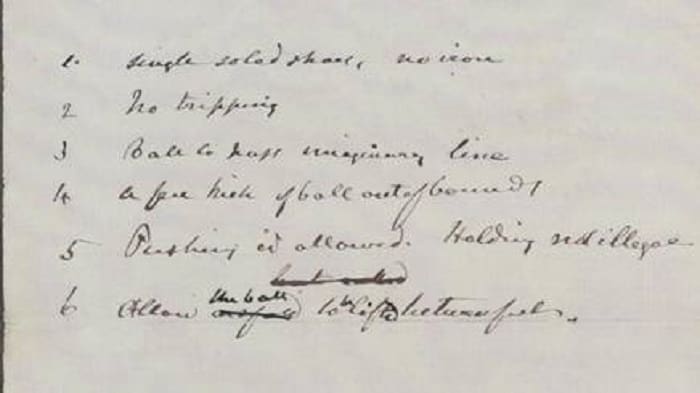 1 single soled shoes, no iron
2 No tripping
3 Ball to pass imaginary line
4 A free kick if ball out of bounds
5 Pushing is allowed. Holding not illegal
6 Allow the ball to be lifted between feet.